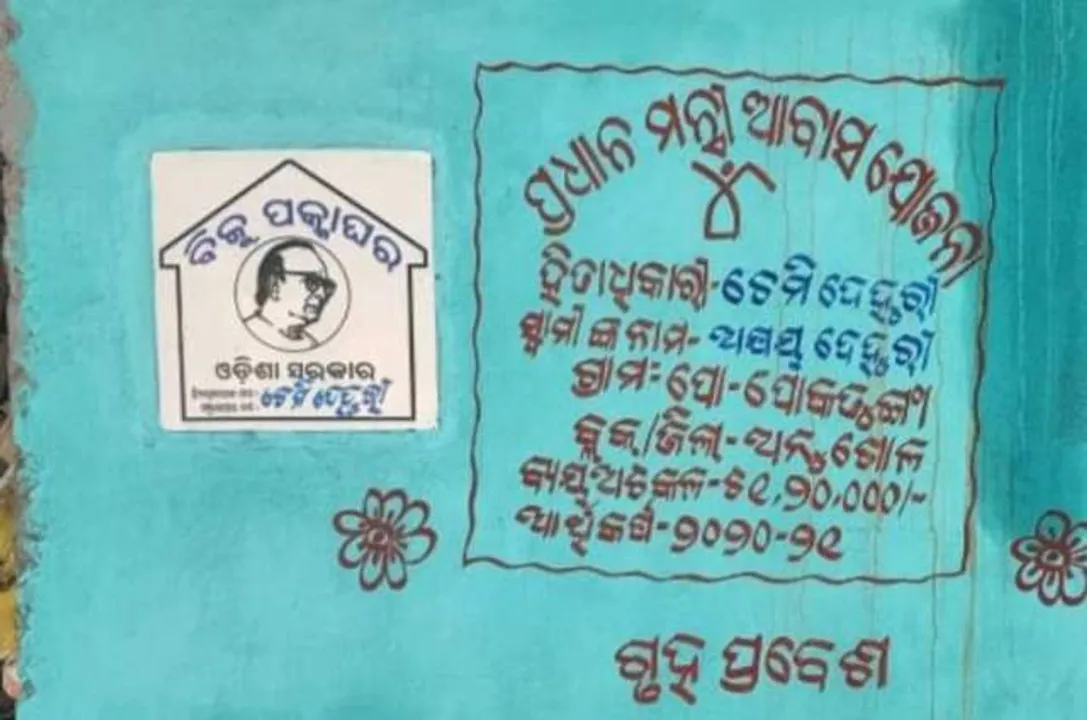 ବିଜୁ ପକ୍କାଘର
ଓଡ଼ିଶା ସରକାର
ଟେମି ଦେହୁରୀ
ପ୍ରଧାନ ମନ୍ତ୍ରୀ ଆବାସ ଯୋଜନା
ହିତାଧିକାରୀ-ଟେମି ଦେହୁରୀ
ସ୍ୱାମୀଙ୍କ ନାମ-ଅକ୍ଷୟ ଦେହୁରୀ
ଗ୍ରାମ: ପୋ-
ବ୍ଲକ/ଜିଲ୍ଲା-ଅନୁଗୋଳ
ବ୍ୟୟଅଟକଳ-ଟ୧,୨୦,୦୦୦/-
ଆର୍ଥିକବର୍ଷ-୨୦୨୦-୨୧
ଗୃହ ପ୍ରବେଶ